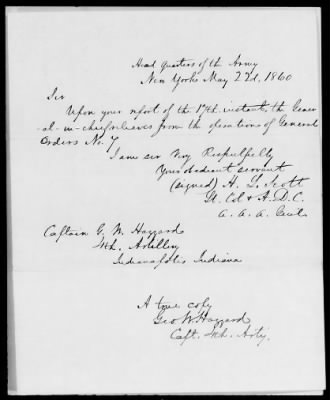 Head Quarters of the Army
New York May 22d. 1860
Sir
Upon your report of the 17th instant, the Gener
al-in-chief relieves from the operations of General
Orders No. 7
I am sir Very Respectfully
Your obedient servant
(signed) H. L. Scott
Lt. Col & A.D.C.
A. A. A. Genl.
Captain G. W. Hazzard
4th. Artillery
Indianapolis Indiana
A true copy
Geo W. Hazzard
Capt. 4th. Arty.